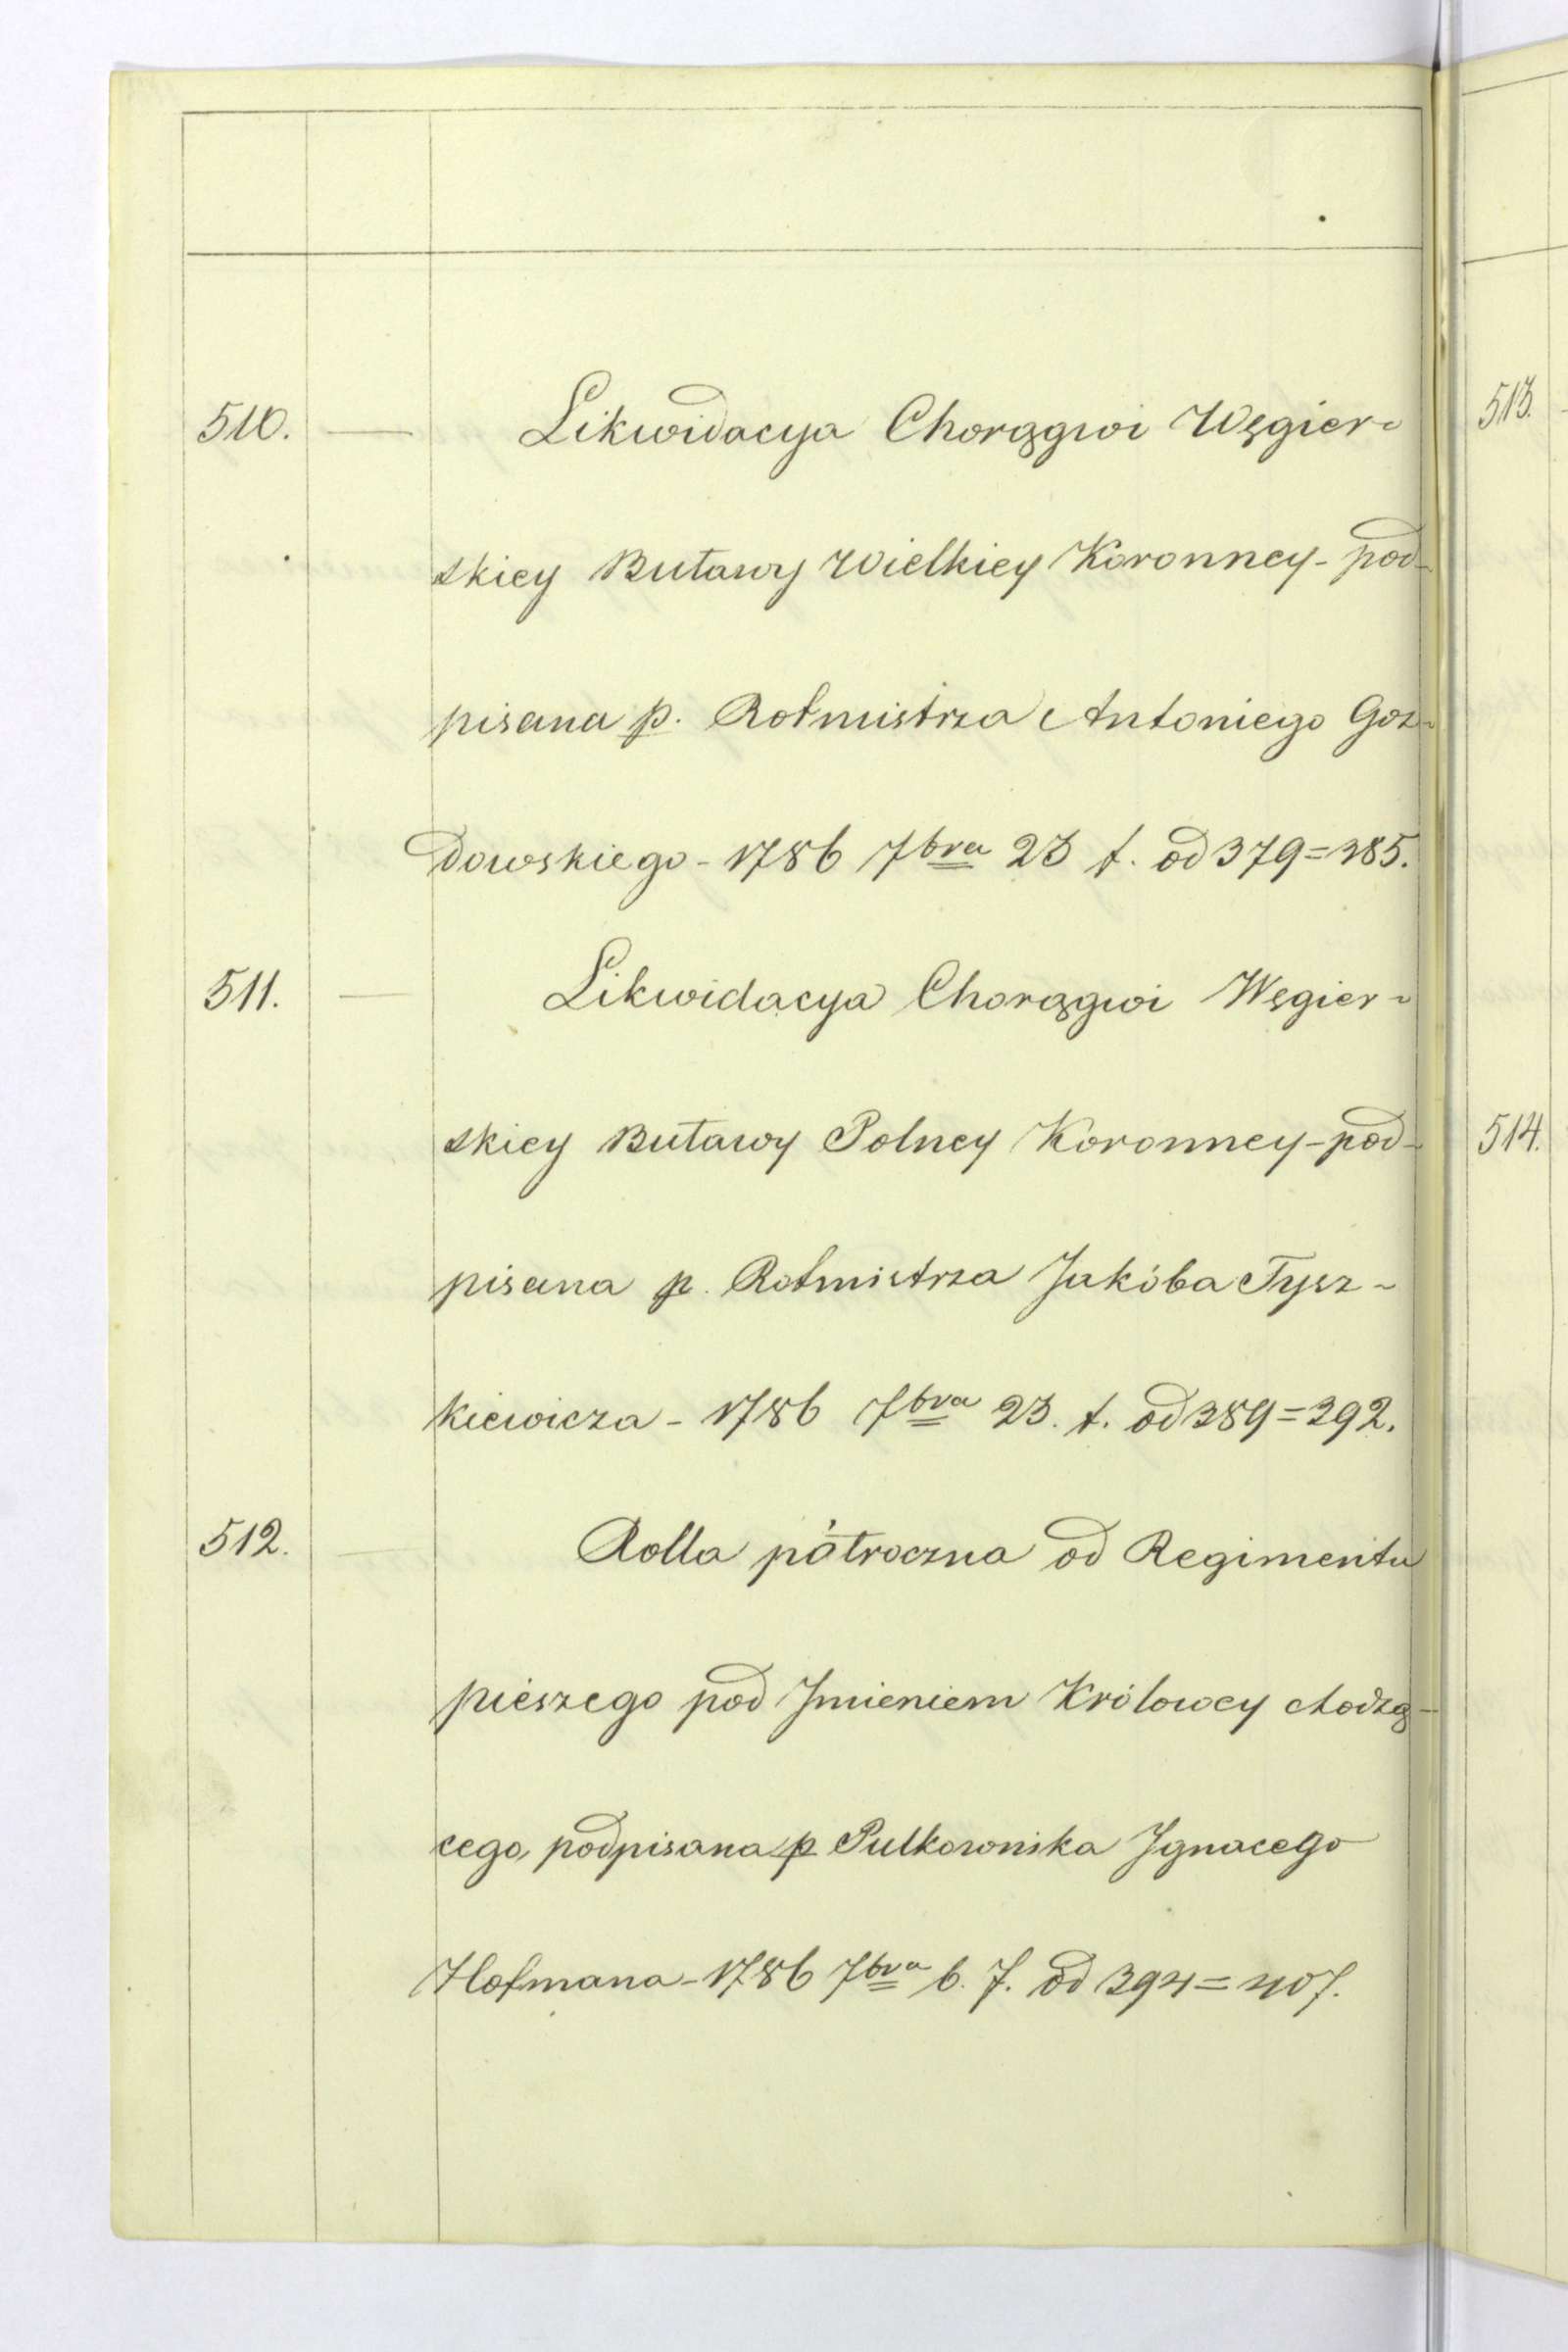 510. — Likwidacya Chorągwi Węgier-
skiey Buławy Wielkiey Koronney - pod-
pisana p. Rotmistrza Antoniego Goz-
dowskiego - 1786 7bra 23 f. od 379=385.
511. — Likwidacya Chorągwi Węgier-
skiey Buławy Polney Koronney - pod-
pisana p. Rotmistrza Jakóba Tysz-
kiewicza - 1786 7bra 23. f. od 389=392.
512. — Rolla półroczna od Regimentu
pieszego pod Jmieniem Królowey chodzą-
cego, podpisana p Pulkownika Jgnacego
Hofmana - 1786 7bra 6. f. od 394=407.
513.
514.